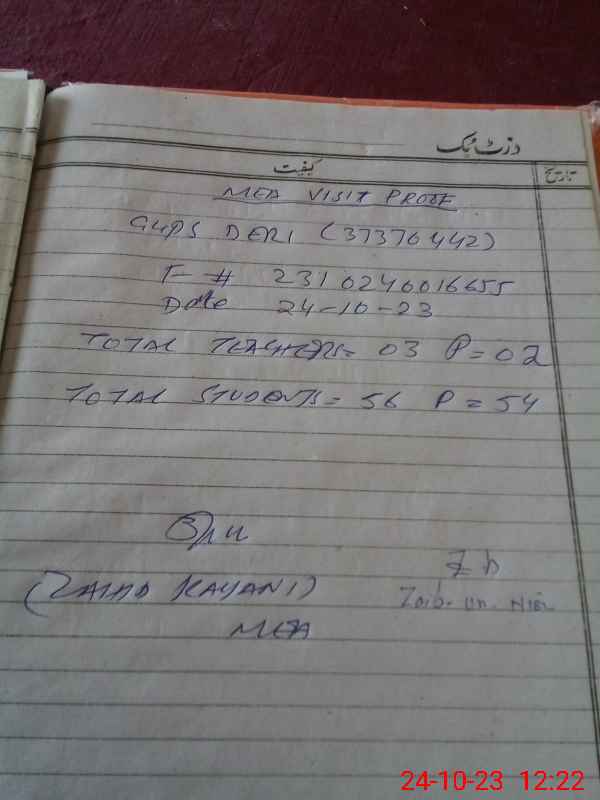 وزٹ بک
تاریخ کیفیت
MEA VISIT PROOF
GGPS DERI (37370442)
F # 2310240016655
Date 24-10-23
TOTAL TEACHERS= 03 P=02
TOTAL STUDENTS= 56 P=54
(ZAHID KAYANI)
MEA
Zaib-un-Nisa
24-10-23 12:22